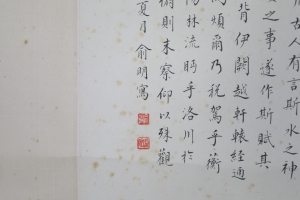 古人有言斯水之神
之事遂作斯賦其
背伊闕越轘轅經通
馬煩爾乃稅駕乎蘅
陽林流眄乎洛川於
則未察仰以殊觀
夏月俞明寫